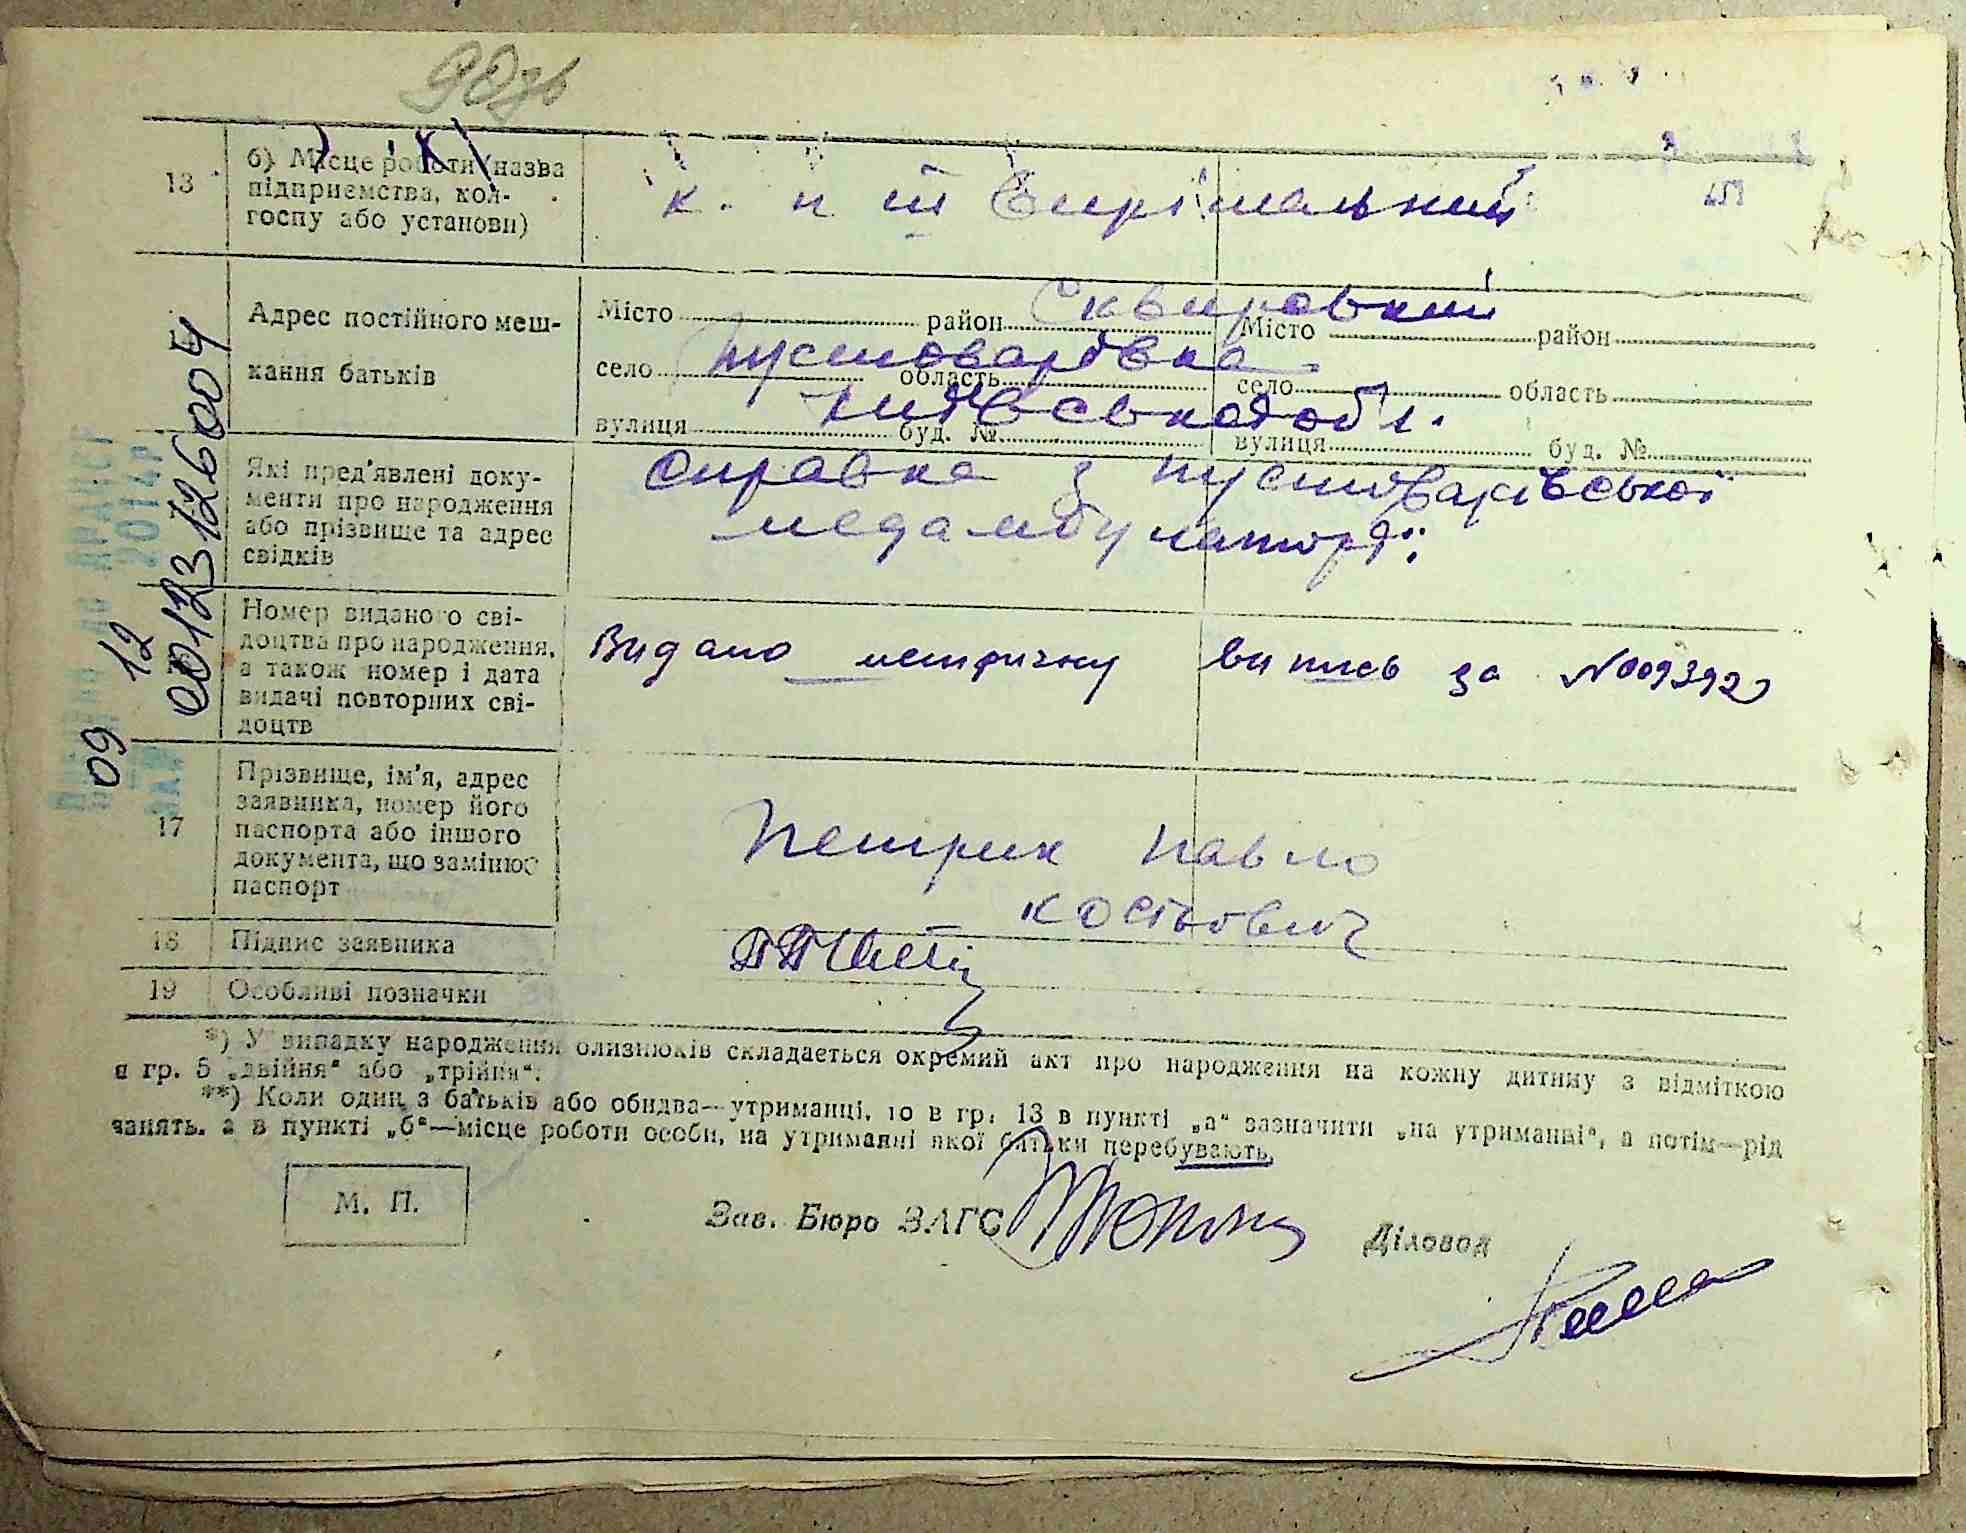 90зв
13
б) Місце роботи (назва
підприємства, кол-
госпу або установи)
к. п ІІІ Вирішальний
Адрес постійного меш-
кання батьків
Місто район Сквирський Місто район
село Пустоварівка область село область
Київської обл.
вулиця буд. № вулиця буд. №
Які пред'явлені доку-
менти про народження
або прізвище та адрес
свідків
справка з Пустоварівської
медамбулаторії
Номер виданого сві-
доцтва про народження,
а також номер і дата
видачі повторних сві-
доцтв
Видано метричну випись за №009392
09 12
00123126004
17
Прізвище, ім'я, адрес
заявника, номер його
паспорта або іншого
документа, що замінює
паспорт
Петрик Павло
Костьович
18 Підпис заявника
19 Особливі позначки
*) У випадку народження близнюків складається окремий акт про народження на кожну дитину з відміткою
в гр. 5 „двійня“ або „трійня“.
**) Коли один з батьків або обидва—утриманці, то в гр. 13 в пункті „а“ зазначити „на утриманні“, а потім—рід
занять, а в пункті „б“—місце роботи особи, на утриманні якої батьки перебувають.
М. П.
Зав. Бюро ЗАГС
Діловод